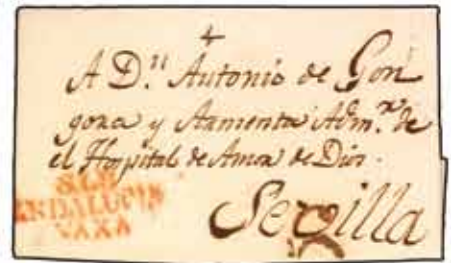 A D.ⁿ Antonio de Gon
gora y Armenta Adm.ᵒʳ de
el Hospital de Amor de Dios.
Sevilla
ANDALUCIA
BAXA